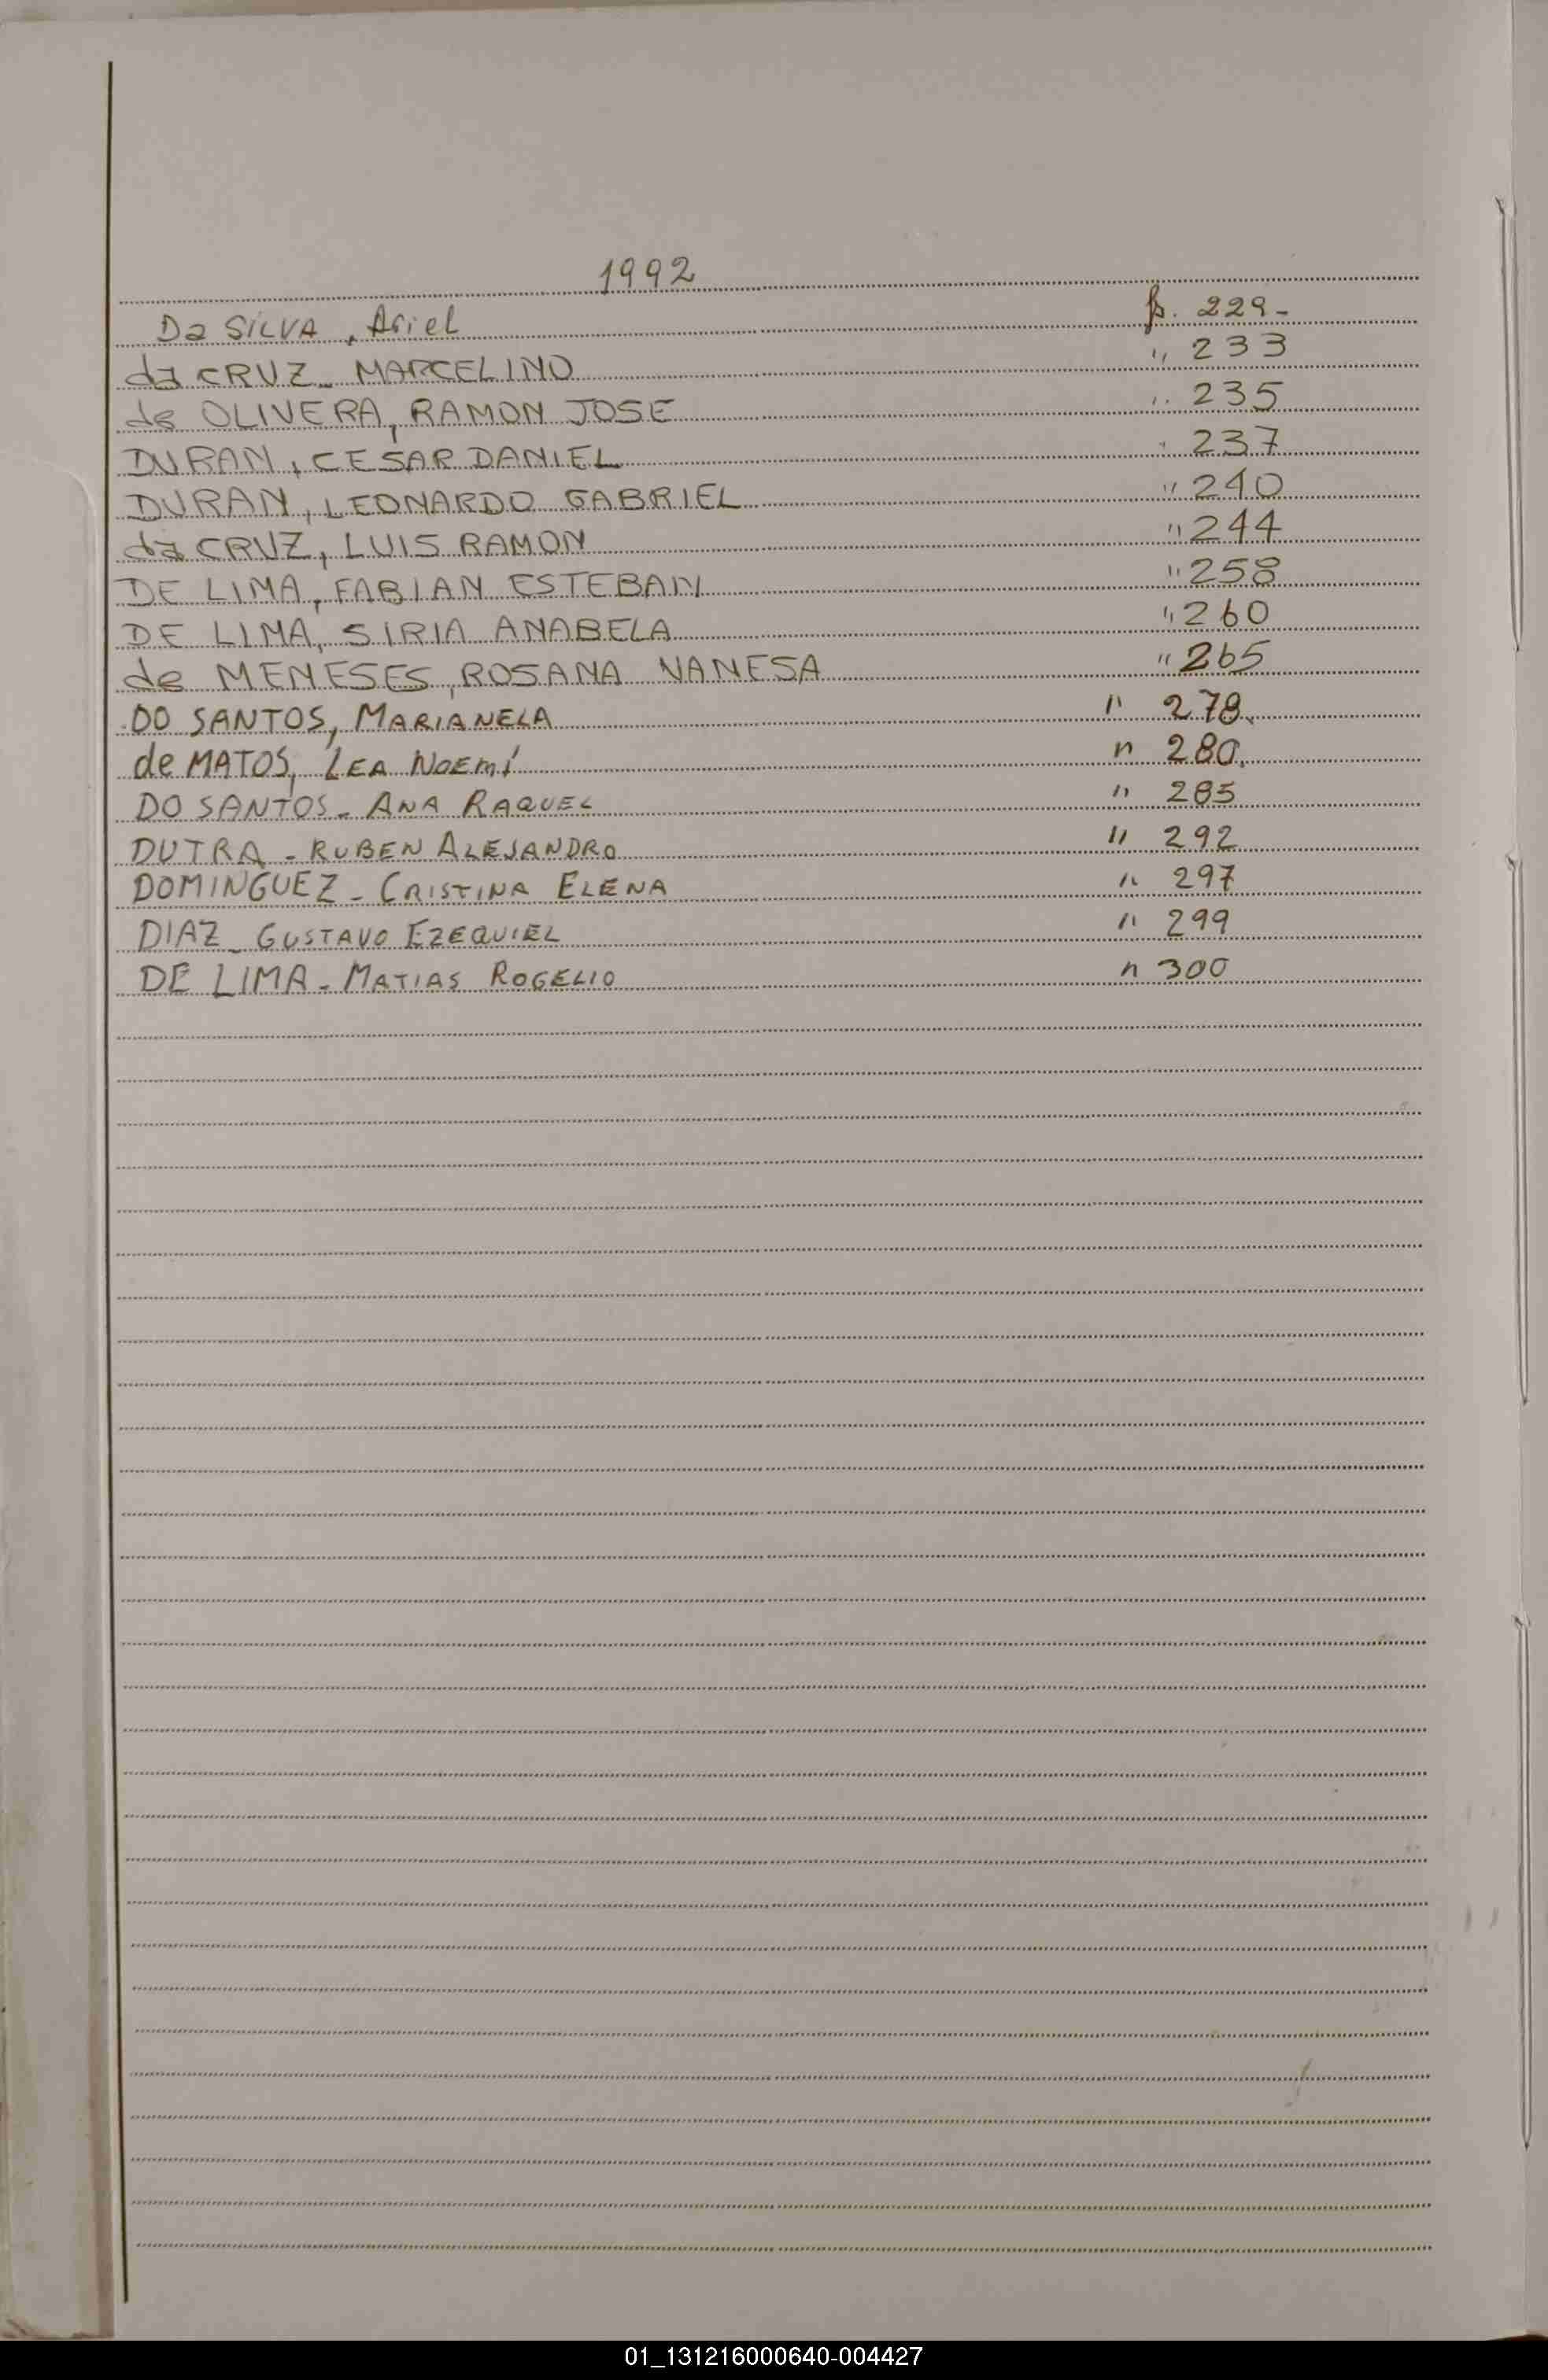 1992
Da SILVA, Ariel p. 229-
da CRUZ- MARCELINO " 233
de OLIVERA, RAMON JOSE " 235
DURAN, CESAR DANIEL " 237
DURAN, LEONARDO GABRIEL " 240
da CRUZ, LUIS RAMON " 244
DE LIMA, FABIAN ESTEBAN " 258
DE LIMA, SIRIA ANABELA " 260
de MENESES, ROSANA VANESA " 265
DO SANTOS, MARIANELA " 278.
de MATOS, LEA NOEMÍ " 280.
DO SANTOS- ANA RAQUEL " 285
DUTRA - RUBEN ALEJANDRO " 292
DOMINGUEZ - CRISTINA ELENA " 297
DIAZ- GUSTAVO EZEQUIEL " 299
DE LIMA- MATIAS ROGELIO " 300
01_131216000640-004427